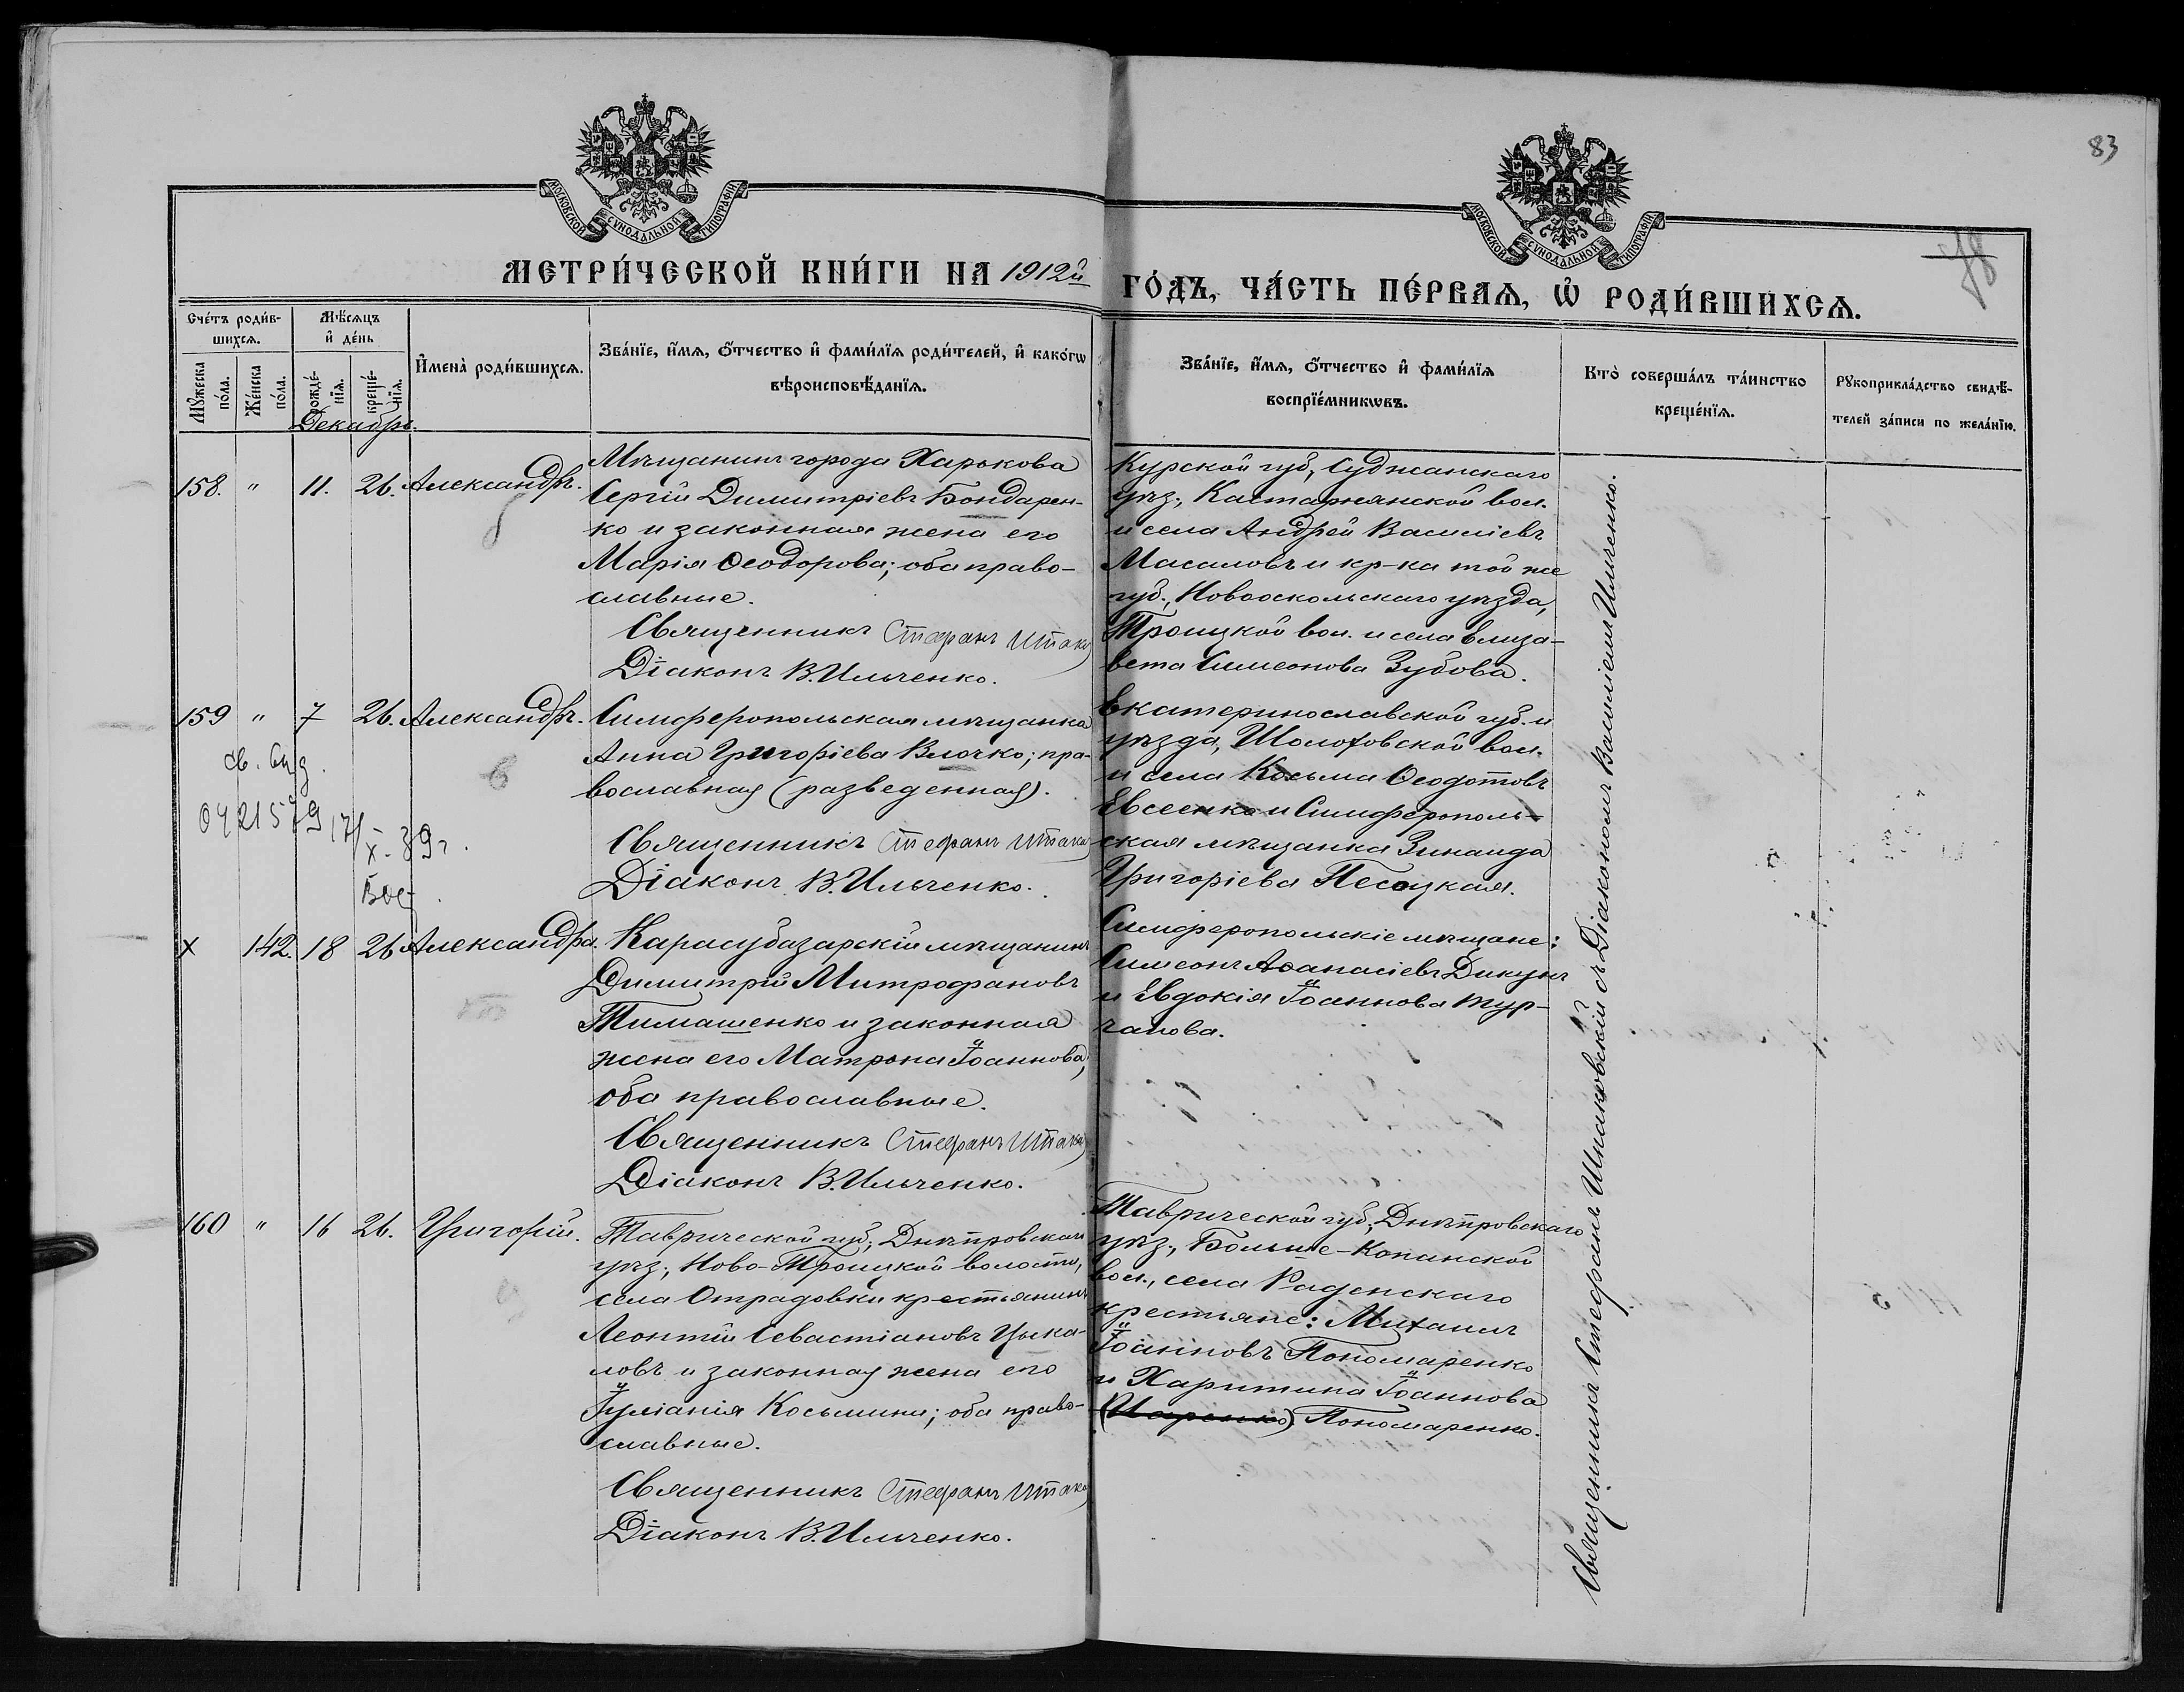 83
78
МОСКОВСКОЙ СѴНОДАЛЬНОЙ ТИПОГРАФІИ
МОСКОВСКОЙ СѴНОДАЛЬНОЙ ТИПОГРАФІИ
МЕТРИ́ЧЕСКОЙ КНИ́ГИ НА 1912й ГО́ДЪ, ЧА́СТЬ ПЕ́РВАѦ, Ѡ҆ РОДИ́ВШИХСѦ.
Сче́тъ роди́в-
шихсѧ.
Мꙋ́жеска по́ла.
Же́нска по́ла.
Мѣ́сѧцъ
и҆ де́нь
рожде́-нїѧ.
креще́-нїѧ.
Декабрь.
И҆мена̀ роди́вшихсѧ.
Зва́нїе, и҆́мѧ, ѻ҆́тчество и҆ фами́лїѧ роди́телей, и҆ како́гѡ
вѣроисповѣ́данїѧ.
Зва́нїе, и҆́мѧ, ѻ҆́тчество и҆ фами́лїѧ
воспрїе́мникѡвъ.
Кто̀ соверша́лъ та́инство
креще́нїѧ.
Рꙋкоприкла́дство свидѣ́-
телей за́писи по жела́нїю.
158. " 11. 26. Александръ.
Мѣщанинъ города Харькова
Сергій Димитріевъ Бондарен-
ко и законная жена его
Марія Ѳеодорова; оба право-
славные.
Священникъ Стефанъ Шпако
Діаконъ В. Ильченко.
Курской губ., Суджанскаго
уѣз., Касторнянской вол.
и села Андрей Василіевъ
Масаловъ и кр-ка той же
губ., Новооскольскаго уѣзда,
Троицкой вол. и села Елиза-
вета Симеонова Зубова.
159 " 7 26. Александръ.
св. выд.
0421579 17/X-39г.
Симферопольская мѣщанка
Анна Григоріева Влочко; пра-
вославная (разведенная).
Священникъ Стефанъ Шпако
Діаконъ В. Ильченко.
Екатеринославской губ. и
уѣзда, Шолоховской вол.
и села Козьма Ѳеодотовъ
Евсеенко и Симферополь-
ская мѣщанка Зинаида
Григоріева Песоцкая.
х 142. 18 26 Александра.
Карасубазарскій мѣщанинъ
Димитрій Митрофановъ
Тимашенко и законная
жена его Матрона Іоаннова,
оба православные.
Священникъ Стефанъ Шпако
Діаконъ В. Ильченко.
Симферопольскіе мѣщане:
Симеонъ Аѳанасіевъ Дикунъ
и Евдокія Іоаннова Тур-
чанова.
160 " 16 26. Григорій.
Таврической губ., Днѣпровскаго
уѣз., Ново-Троицкой волости,
села Отрадовки крестьянинъ
Леонтій Севастіановъ Цыка-
ловъ и законная жена его
Іуліанія Косьмина; оба право-
славные.
Священникъ Стефанъ Шпако
Діаконъ В. Ильченко.
Таврической губ., Днѣпровскаго
уѣз., Больше-Копанской
вол., села Раденскаго
крестьяне: Михаилъ
Іоанновъ Пономаренко
и Харитина Іоаннова
Пономаренко.
Священникъ Стефанъ Шпаковскій съ Діакономъ Василіемъ Ильченко.